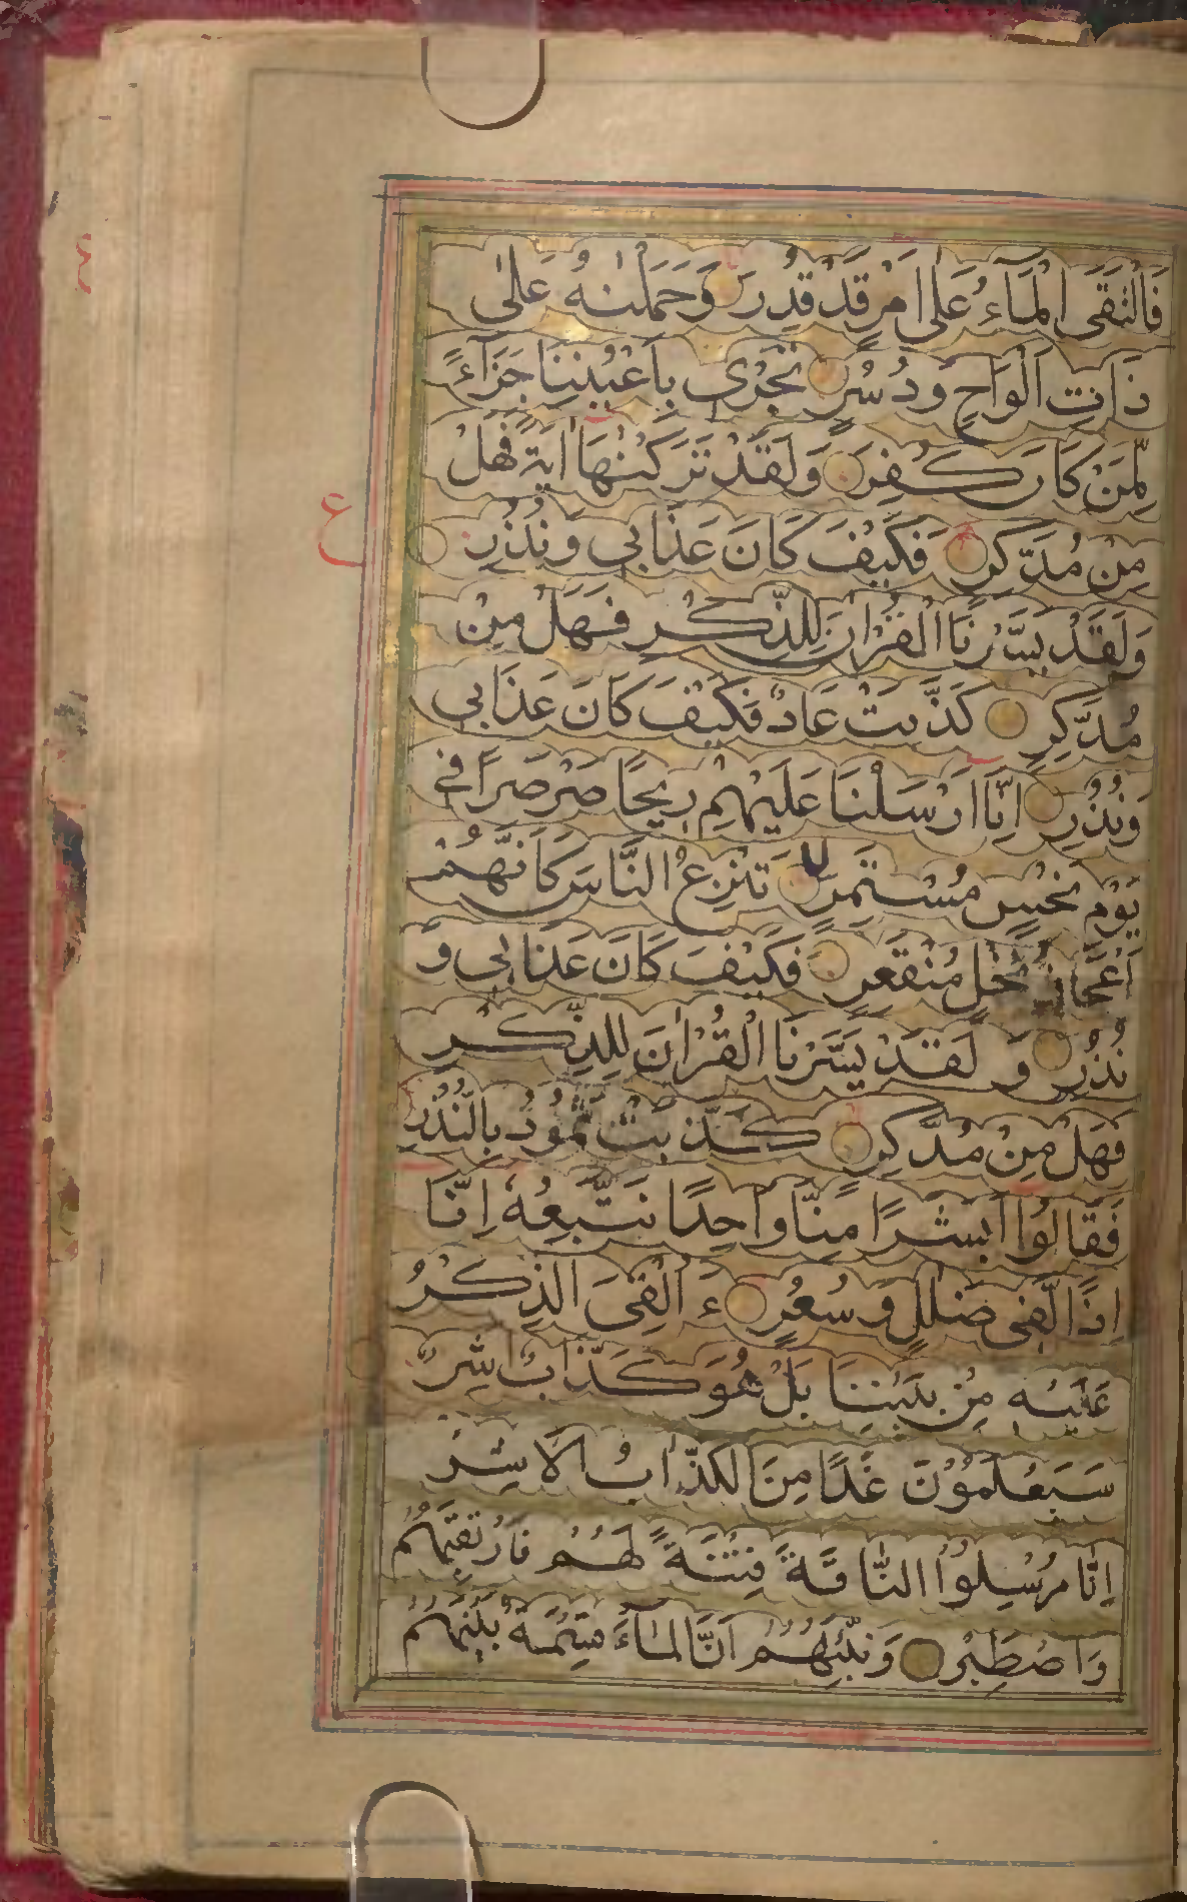 فَالْتَقَى الْمَآءُ عَلٰى اَمْرٍ قَدْ قُدِرَ وَحَمَلْنٰهُ عَلٰى
ذَاتِ اَلْوَاحٍ وَدُسُرٍ تَجْرِىْ بِاَعْيُنِنَا جَزَآءً
لِّمَنْ كَانَ كُفِرَ وَلَقَدْ تَرَكْنٰهَا اٰيَةً فَهَلْ
مِنْ مُدَّكِرٍ فَكَيْفَ كَانَ عَذَابِى وَنُذُرِ
ع
وَلَقَدْ يَسَّرْنَا الْقُرْاٰنَ لِلذِّكْرِ فَهَلْ مِنْ
مُدَّكِرٍ كَذَّبَتْ عَادٌ فَكَيْفَ كَانَ عَذَابِى
وَنُذُرِ اِنَّا اَرْسَلْنَا عَلَيْهِمْ رِيْحًا صَرْصَرًا فِى
يَوْمِ نَحْسٍ مُسْتَمِرٍّ تَنْزِعُ النَّاسَ كَاَنَّهُمْ
اَعْجَازُ نَخْلٍ مُنْقَعِرٍ فَكَيْفَ كَانَ عَذَابِى وَ
نُذُرِ وَ لَقَدْ يَسَّرْنَا الْقُرْاٰنَ لِلذِّكْرِ
فَهَلْ مِنْ مُدَّكِرٍ كَذَّبَتْ ثَمُوْدُ بِالنُّذُرِ
فَقَالُوْا اَبَشَرًا مِنَّا وَاحِدًا نَتَّبِعُهٗ اِنَّا
اِذًا لَّفِىْ ضَلٰلٍ وَسُعُرٍ ءَ اُلْقِىَ الذِّكْرُ
عَلَيْهِ مِنْ بَيْنِنَا بَلْ هُوَ كَذَّابٌ اَشِرٌ
سَيَعْلَمُوْنَ غَدًا مِنَ الكَذَّابُ الْاَشِرُ
اِنَّا مُرْسِلُوا النَّاقَةَ فِتْنَةً لَهُمْ فَارْتَقِبْهُمْ
وَاصْطَبِرْ وَنَبِّئْهُمْ اَنَّ الْمَآءَ قِسْمَةٌ بَيْنَهُمْ